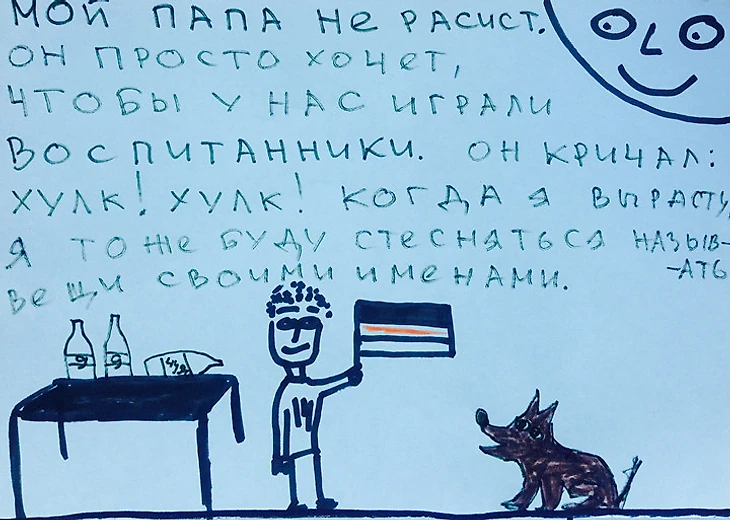 МОЙ ПАПА НЕ РАСИСТ.
ОН ПРОСТО ХОЧЕТ,
ЧТОБЫ У НАС ИГРАЛИ
ВОСПИТАННИКИ. ОН КРИЧАЛ:
ХУЛК! ХУЛК! КОГДА Я ВЫРАСТУ,
Я ТОЖЕ БУДУ СТЕСНЯТЬСЯ НАЗЫВ-
-АТЬ
ВЕЩИ СВОИМИ ИМЕНАМИ.
Я Я
14